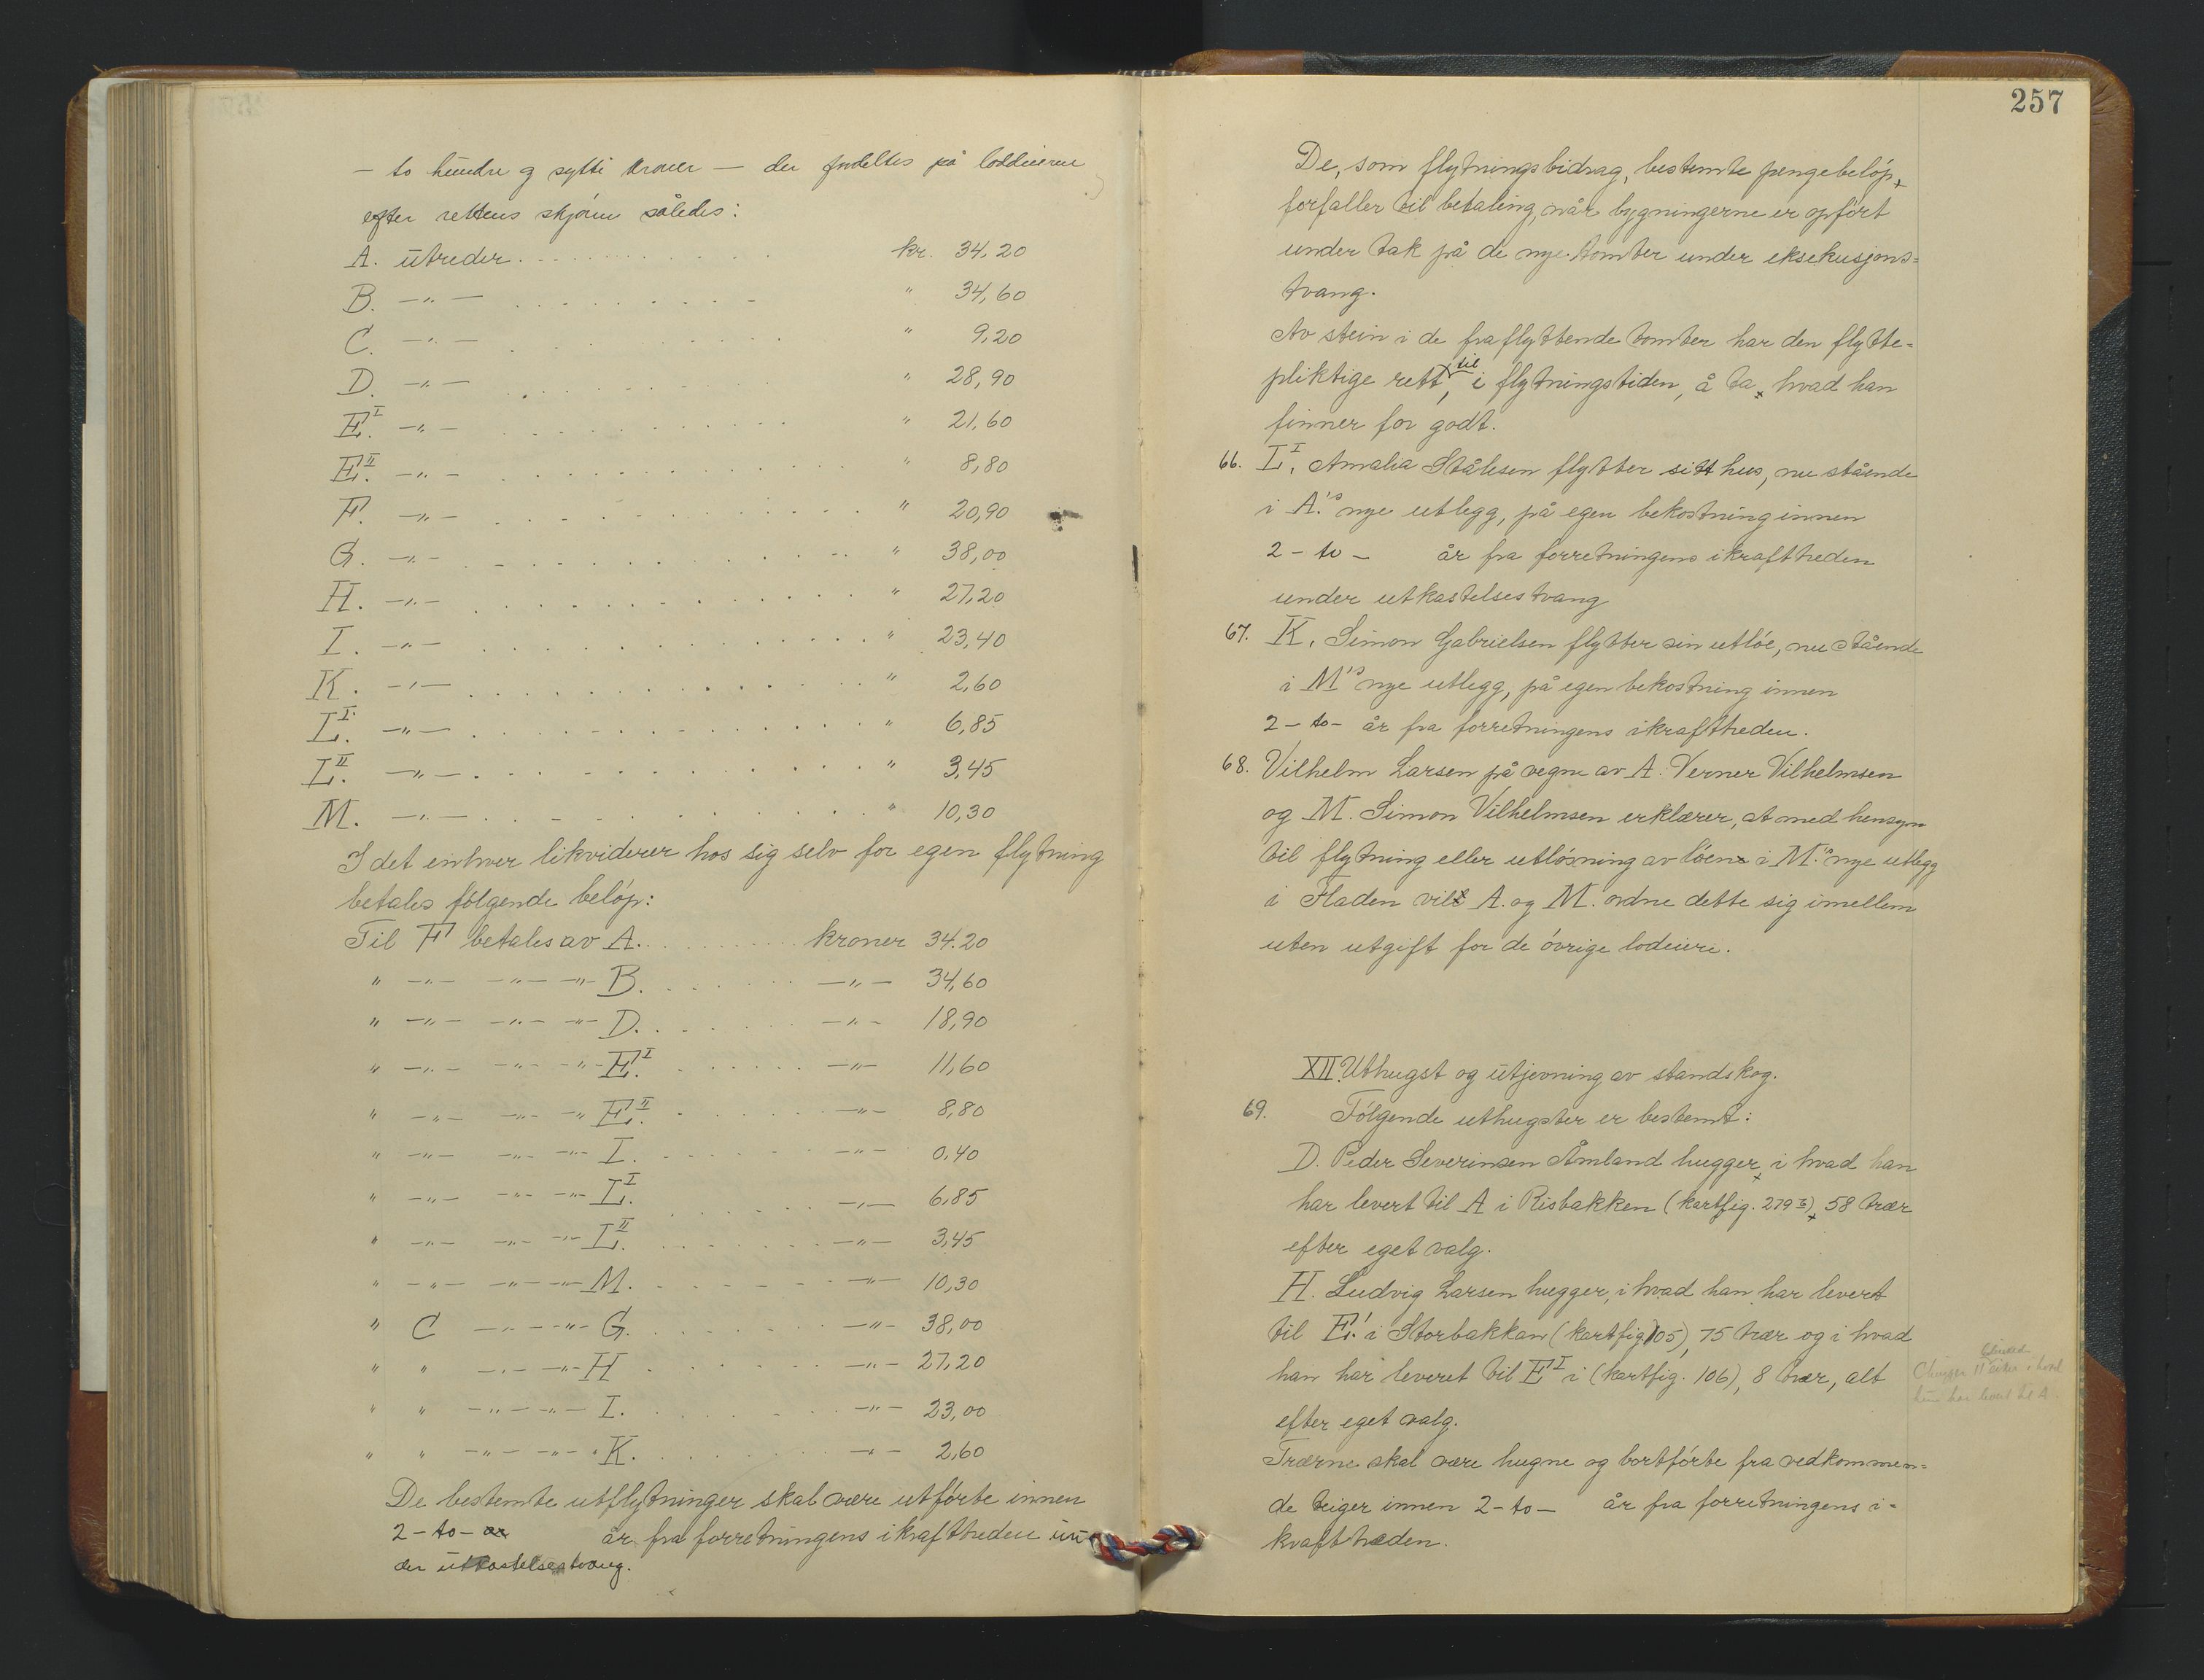 — to hundre og sytti kroner — der fordeltes på loddeierne
efter rettens skjønn således:
A. utreder . . . . . . . . . . kr. 34,20
B. —„— . . . . . . . . . „ 34,60
C. —„— . . . . . . . . . „ 9,20
D. —„— . . . . . . . „ 28,90
E.I —„— . . . . . . . . . . „ 21,60
E.II —„— . . . . . . . . . . „ 8,80
F. —„— . . . . . . . . . . „ 20,90
G. —„— . . . . . . . . . . „ 38,00
H. —„— . . . . . . . . . . „ 27,20
I. —„— . . . . . . . . . . „ 23,40
K. —„— . . . . . . . . . . „ 2,60
L.I —„— . . . . . . . . . . „ 6,85
L.II —„— . . . . . . . . . . „ 3,45
M. —„— . . . . . . . . . . „ 10,30
I det enhver likviderer hos sig selv for egen flytning
betales følgende beløp:
Til F betales av A. . . . . . . . kroner 34.20
„ —„— —„— —„— B. . . . . . . —„— 34,60
„ —„— —„— —„— D. . . . . . . —„— 18,90
„ —„— —„— —„— E.I . . . . . . —„— 11,60
„ —„— —„— —„ E.II . . . . . . —„— 8,80
„ —„— —„— —„— I. . . . . . . —„— 0,40
„ —„— —„— —„— L.I . . . . . . —„— 6,85
„ —„— —„— —„— L.II . . . . . . —„— 3,45
„ —„— —„— —„— M. . . . . . . —„— 10,30
„ C —„— —„— G. . . . . . . —„— 38,00
„ „ —„— —„— H . . . . . . —„— 27,20
„ „ —„— —„— I. . . . . . . —„— 23,00
„ „ —„— —„— K. . . . . . . —„— 2,60
De bestemte utflytninger skal være utførte innen
2 - to - år fra forretningens ikrafttreden un-
der utkastelsestvang.
257
De, som flytningsbidrag, bestemte pengebeløp,
forfaller til betaling, når bygningerne er opført
under tak på de nye tomter under eksekusjons=
tvang.
Av stein i de fraflyttende tomter har den flytte=
pliktige rett, til i flytningstiden, å ta, hvad han
finner for godt.
66. L.I, Amalia Stålesen flytter sitt hus, nu stående
i A.'s nye utlegg, på egen bekostning innen
2 - to - år fra forretningens ikrafttreden
under utkastelsestvang
67. K. Simon Gabrielsen flytter sin utløe, nu stående
i M's nye utlegg, på egen bekostning innen
2 - to - år fra forretningens ikrafttreden.
68. Vilhelm Larsen på vegne av A. Verner Vilhelmsen
og M. Simon Vilhelmsen erklærer, at med hensyn
til flytning eller utløsning av løen i M.'s nye utlegg
i Fladen vil A. og M. ordne dette sig imellem
uten utgift for de øvrige lodeiere.
XII. Uthugst og utjevning av standskog.
69. Følgende uthugster er bestemt:
D. Peder Severinsen Åmland hugger, i hvad han
har levert til A i Risbakken (kartfig. 279 b), 58 trær
efter eget valg.
H. Ludvig Larsen hugger, i hvad han har levert
til E.I i Storbakkan (kartfig. 105), 75 trær og i hvad
han har leveret til E I i (kartfig. 106), 8 trær, alt
efter eget valg.
Trærne skal være hugne og bortførte fra vedkommen=
de teiger innen 2 - to - år fra forretningens i=
krafttræden.
C hugger 11 i hvad
han har levert til A.